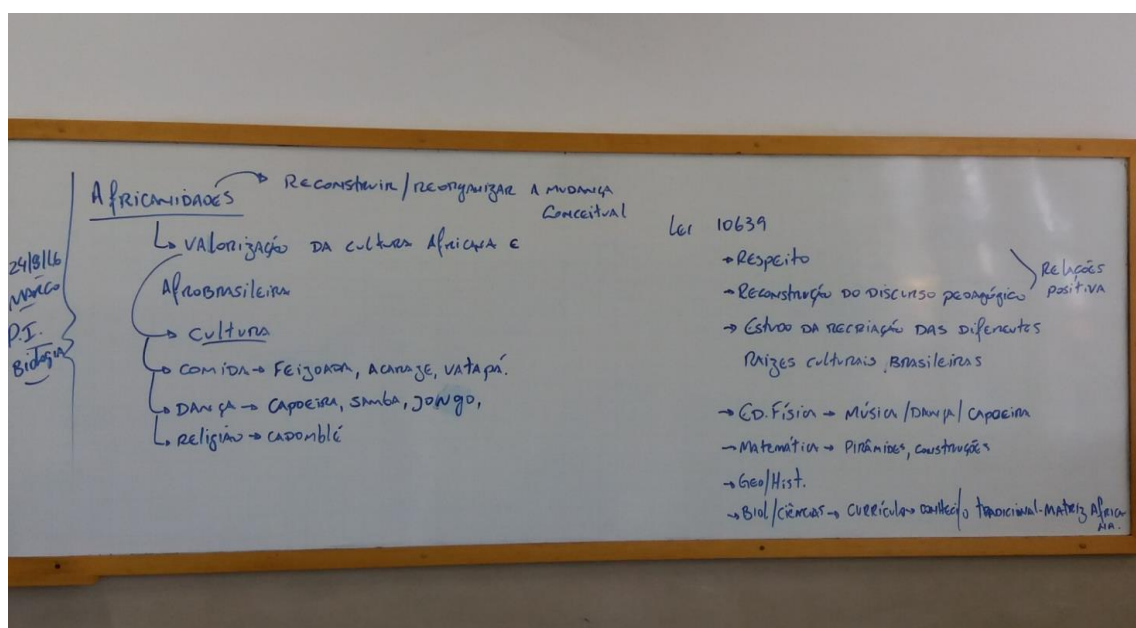 24/8/16
MARCO
P.I.
Biologia
AfRICANIDADES → RECONSTRUIR/REORGANIZAR A MUDANÇA
CONCEITUAL
↳ VALORIZAÇÃO DA CULTURA AfRICANA E
AfROBRASILEIRA
→ CULTURA
→ COMIDA → FEIJOADA, ACARAJE, VATAPÁ.
↳ DANÇA → CAPOEIRA, SAMBA, JONGO,
↳ RELIGIÃO → CADOMBLÉ
Lei 10639
→ RESPEITO
→ RECONSTRUÇÃO DO DISCURSO PEDAGÓGICO
RELAÇÕES
POSITIVA
→ ESTUDO DA RECRIAÇÃO DAS DIFERENTES
RAÍZES CULTURAIS BRASILEIRAS
→ ED. FÍSICA → MÚSICA/DANÇA/CAPOEIRA
→ MATEMÁTICA → PIRÂMIDES, CONSTRUÇÕES
→ GEO/HIST.
→ BIOL/CIÊNCIAS → CURRÍCULO → TRADICIONAL-MATRIZ AfRICA
NA.